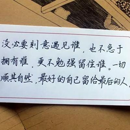 没必要刻意遇见谁，也不急于
拥有谁，更不勉强留住谁。一切
顺其自然，最好的自己留给最后的人。